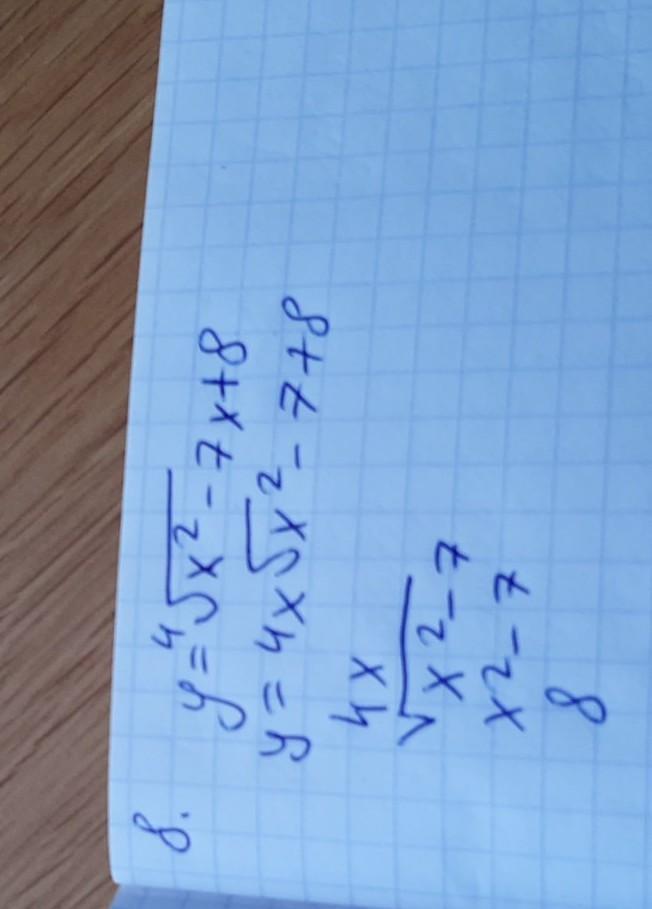 8.
y = ⁴√x² - 7x+8
y = 4x√x² - 7+8
4x
√x² - 7
x² - 7
8